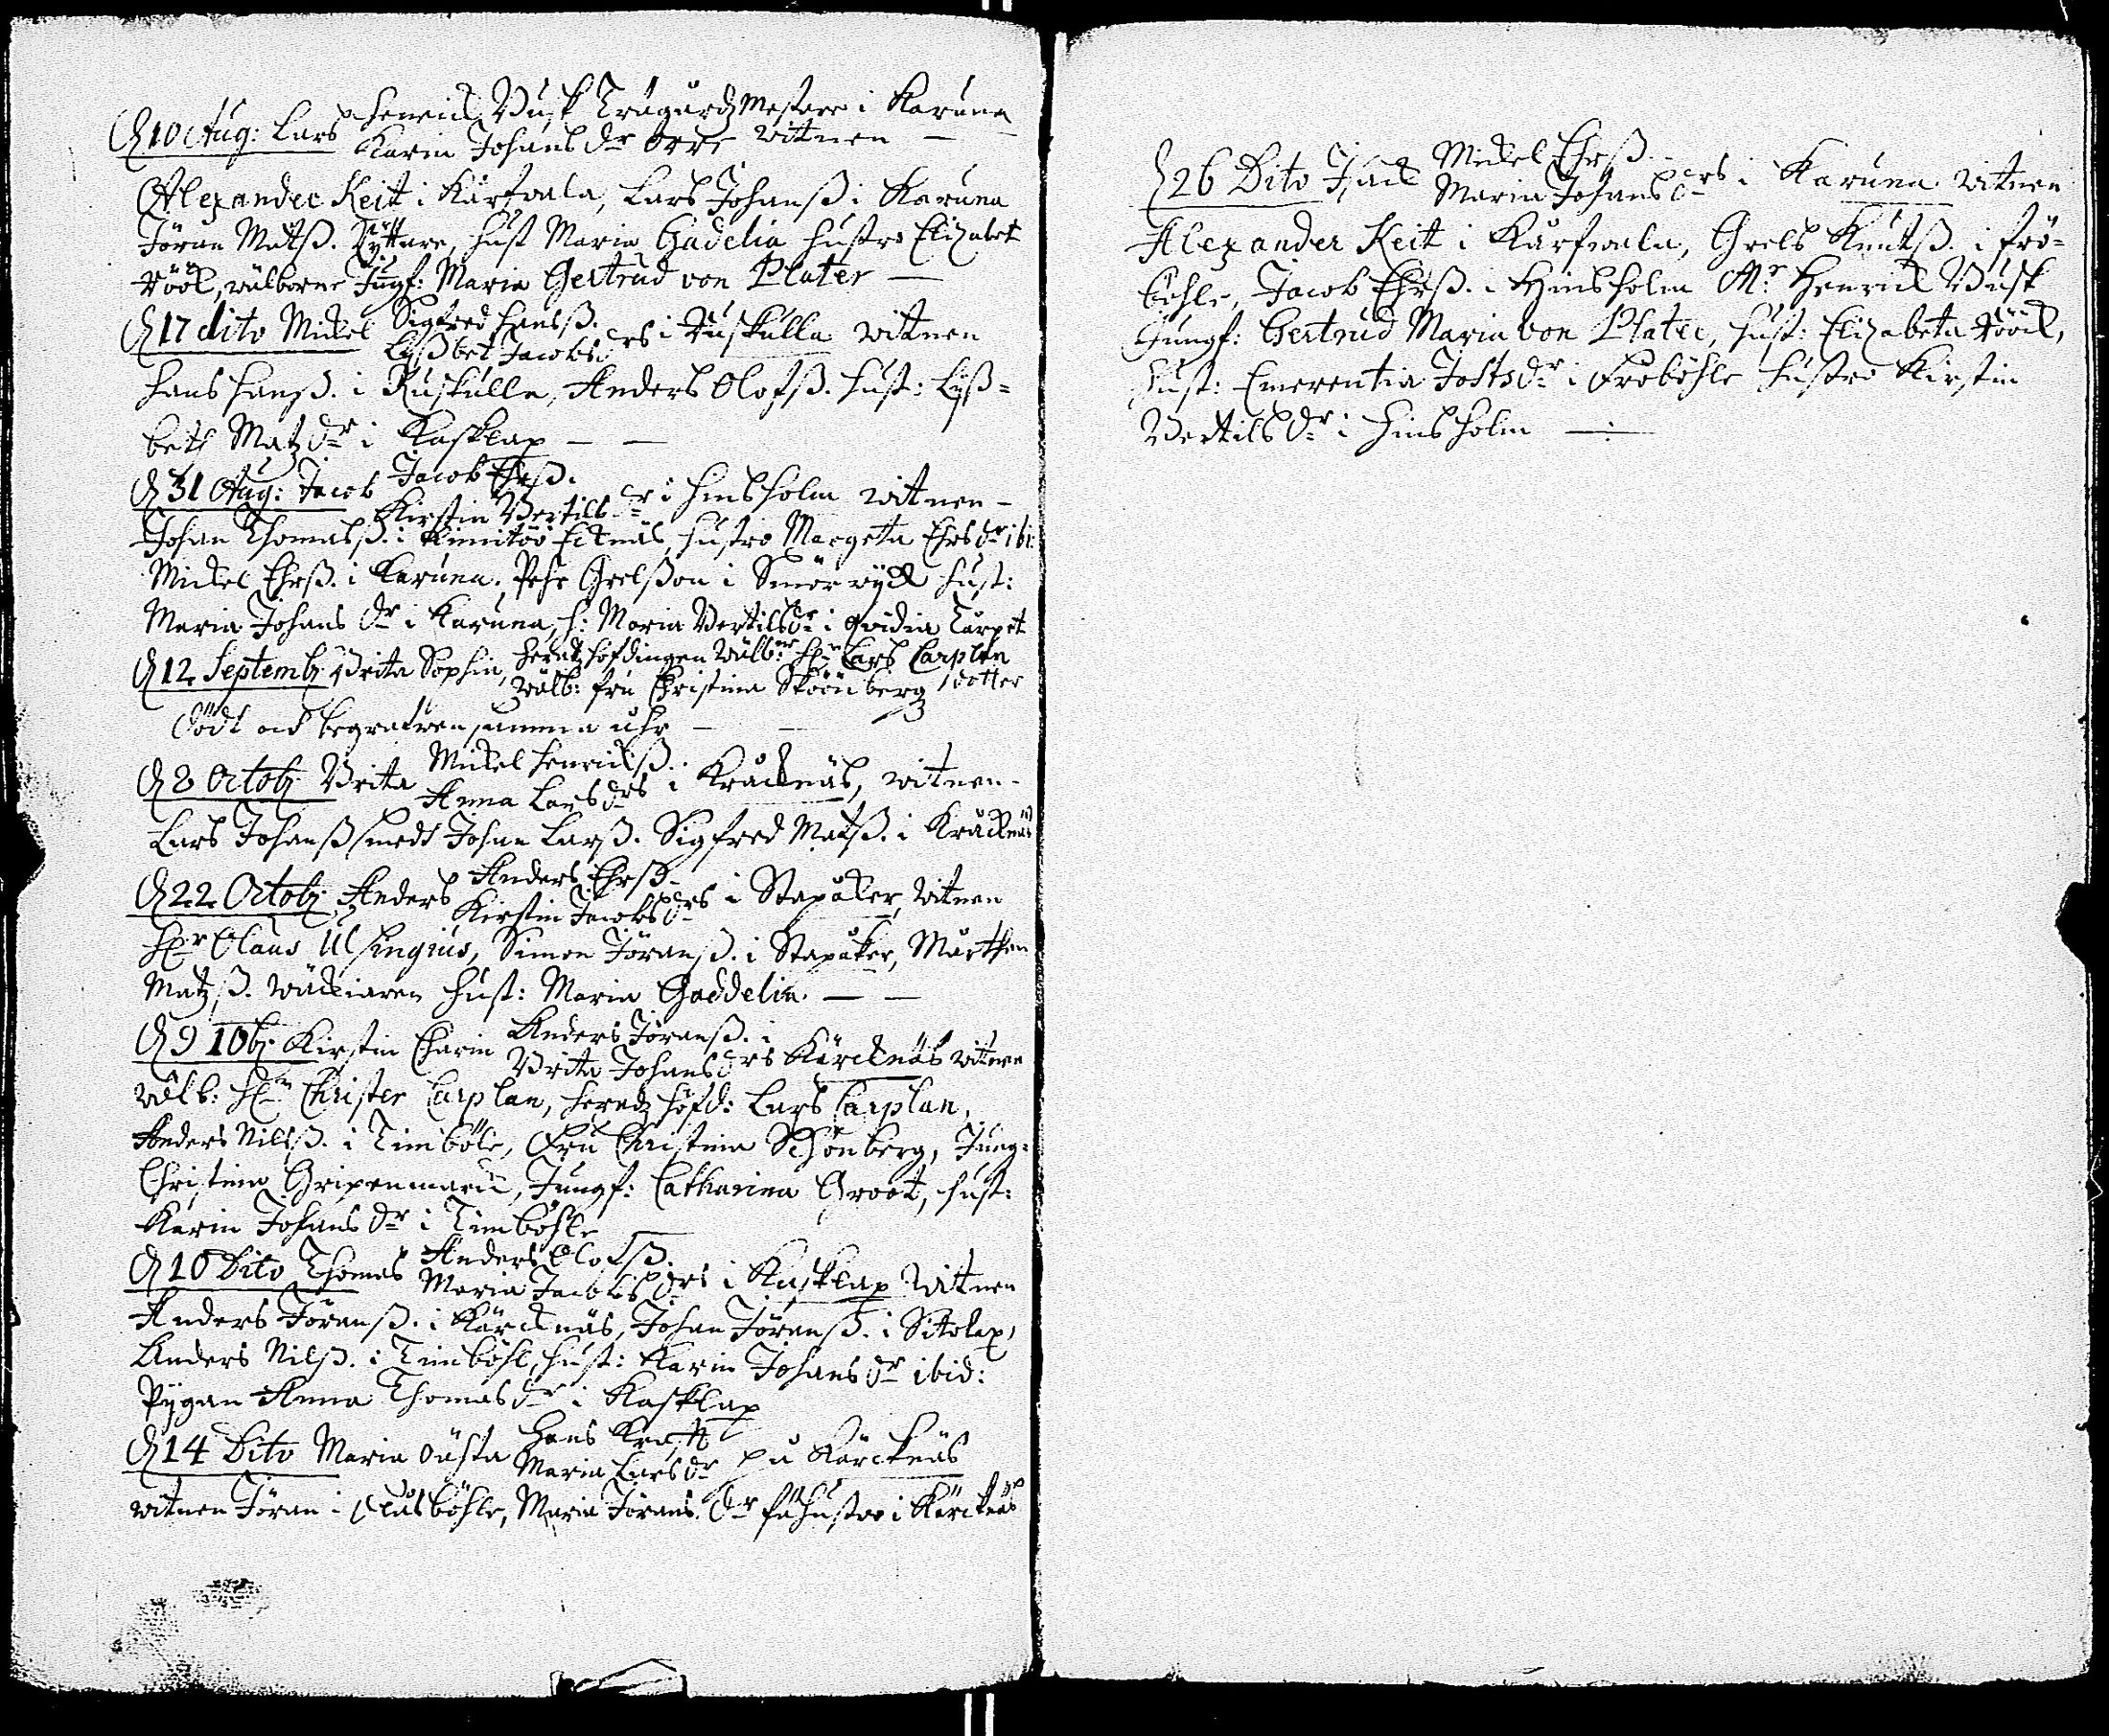 D 10 Aug: Lars Henrick Busk Trägårdz Mestare i Karuna
Karin Johans dr Orre witnen
Alexander Keit i Karfwala, Lars Johanß i Karuna
Jöran Matß. Ryttare, Hust Maria Gadelia hustro Elizabet
Röök, wälborne Jungf: Maria Gertrud von Plater
D 17 dito Mickel Sigfred Hansß.
Lißbet Jacobs drs i Ruskulla witnen
Hans Hanß. i Ruskulla, Anders Olofß. Hust: Liß=
beth Matz dr i Kasklax
D 31 Aug: Jacob Jacob Ehrß.
Kirstin Bertils dr i Hinsholm witnen
Johan Thomasß. i Kimitöö Ecknäs, hustro Margeta Ehrs dr ibi:
Mickel Ehrß. i Karuna, Pehr Grelßon i Smörwyck Hust:
Maria Johans dr i Karuna, h: Maria Bertils dr i Qvidia Tarpet
D 12 Septemb: Brita Sophia, Heradz höfdingen wälb: Hr Lars Carplan
wälb: fru Christina Skönberg dotter
Född och begrafwen samma åhr
D 8 Octob: Brita Mickel Henrickß.
Anna Lars drs i Kräcknäs, witnen
Lars Johanß smedh Johan Larß. Sigfred Matß. i Kräcknäs
D 22 Octob: Anders Anders Ehrß
Kirstin Jacobs drs i Stapåker, witnen
Hr Claus Ulsingius, Simon Jöranß. i Stapåker, Mårthen
Matzß. wäckiaren Hust: Maria Gaddelia.
D 9 10b: Kirstin Charin Anders Jöranß. i
Brita Johans drs Kärcknäs witnen
wälb: Hr Christer Carplan, Heredz höfd: Lars Carplan,
Anders Nilsß. i Timböle, Fru Christina Schönberg, Jung:
Christina Gripenmarck, Jungf: Catharina Groot, Hust:
Karin Johans dr i Timböhle
D 10 Dito Thomas Anders Olofß.
Maria Jacobs drs i Kasklax witnen
Anders Jöranß. i Kärcknäs, Johan Jöranß. i Sitolax,
Anders Nilß. i Timböhl, Hust: Karin Johans dr ibid:
Pygan Anna Thomas dr i Kasklax
D 14 Dito Maria oächta Hans Krafft
Maria Lars dr på Kärcknäs
witnen Jöran i Clasböhle, Maria Jörans dr fähustro i Kärcknäs
D 26 Dito Isack Mickel Ehrß.
Maria Johans drs i Karuna witnen
Alexander Keit i Karfwala, Grels Knutß. i Frö=
böhle, Jacob Ehrß. i Hinsholm Mr Henrick Busk
Jungf: Gertrud Maria von Plater, Hust: Elizabeta Röök,
Hust: Emerentia Josts dr i Fröböhle hustro Kirstin
Bertils dr i Hinsholm